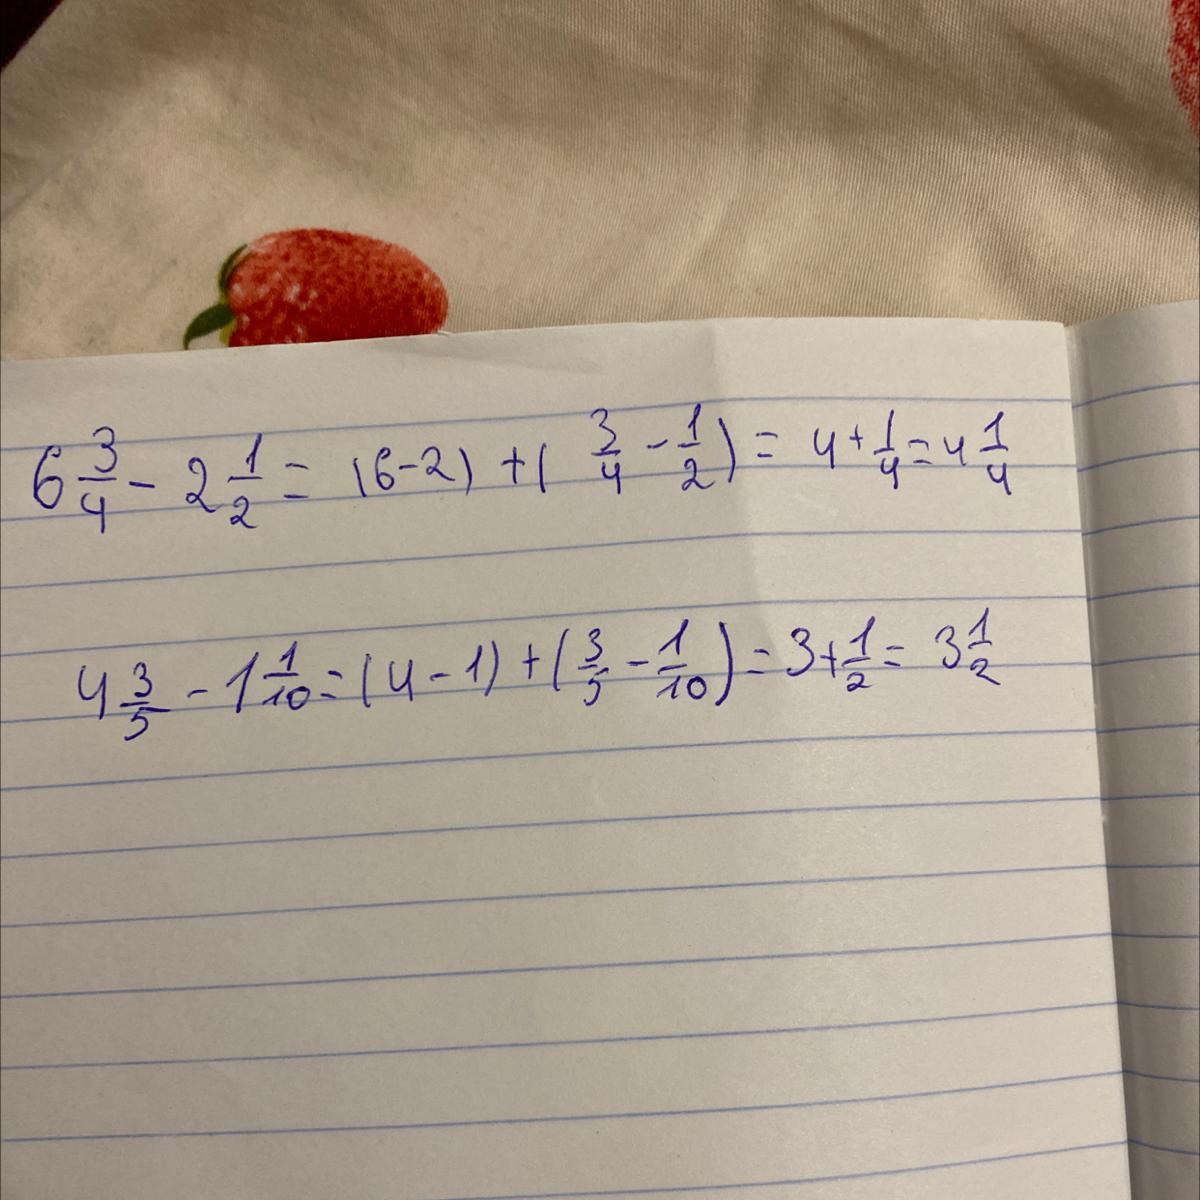 6 3/4 - 2 1/2 = (6-2) + (3/4 - 1/2) = 4 + 1/4 = 4 1/4
4 3/5 - 1 1/10 = (4 - 1) + (3/5 - 1/10) = 3 + 1/2 = 3 1/2